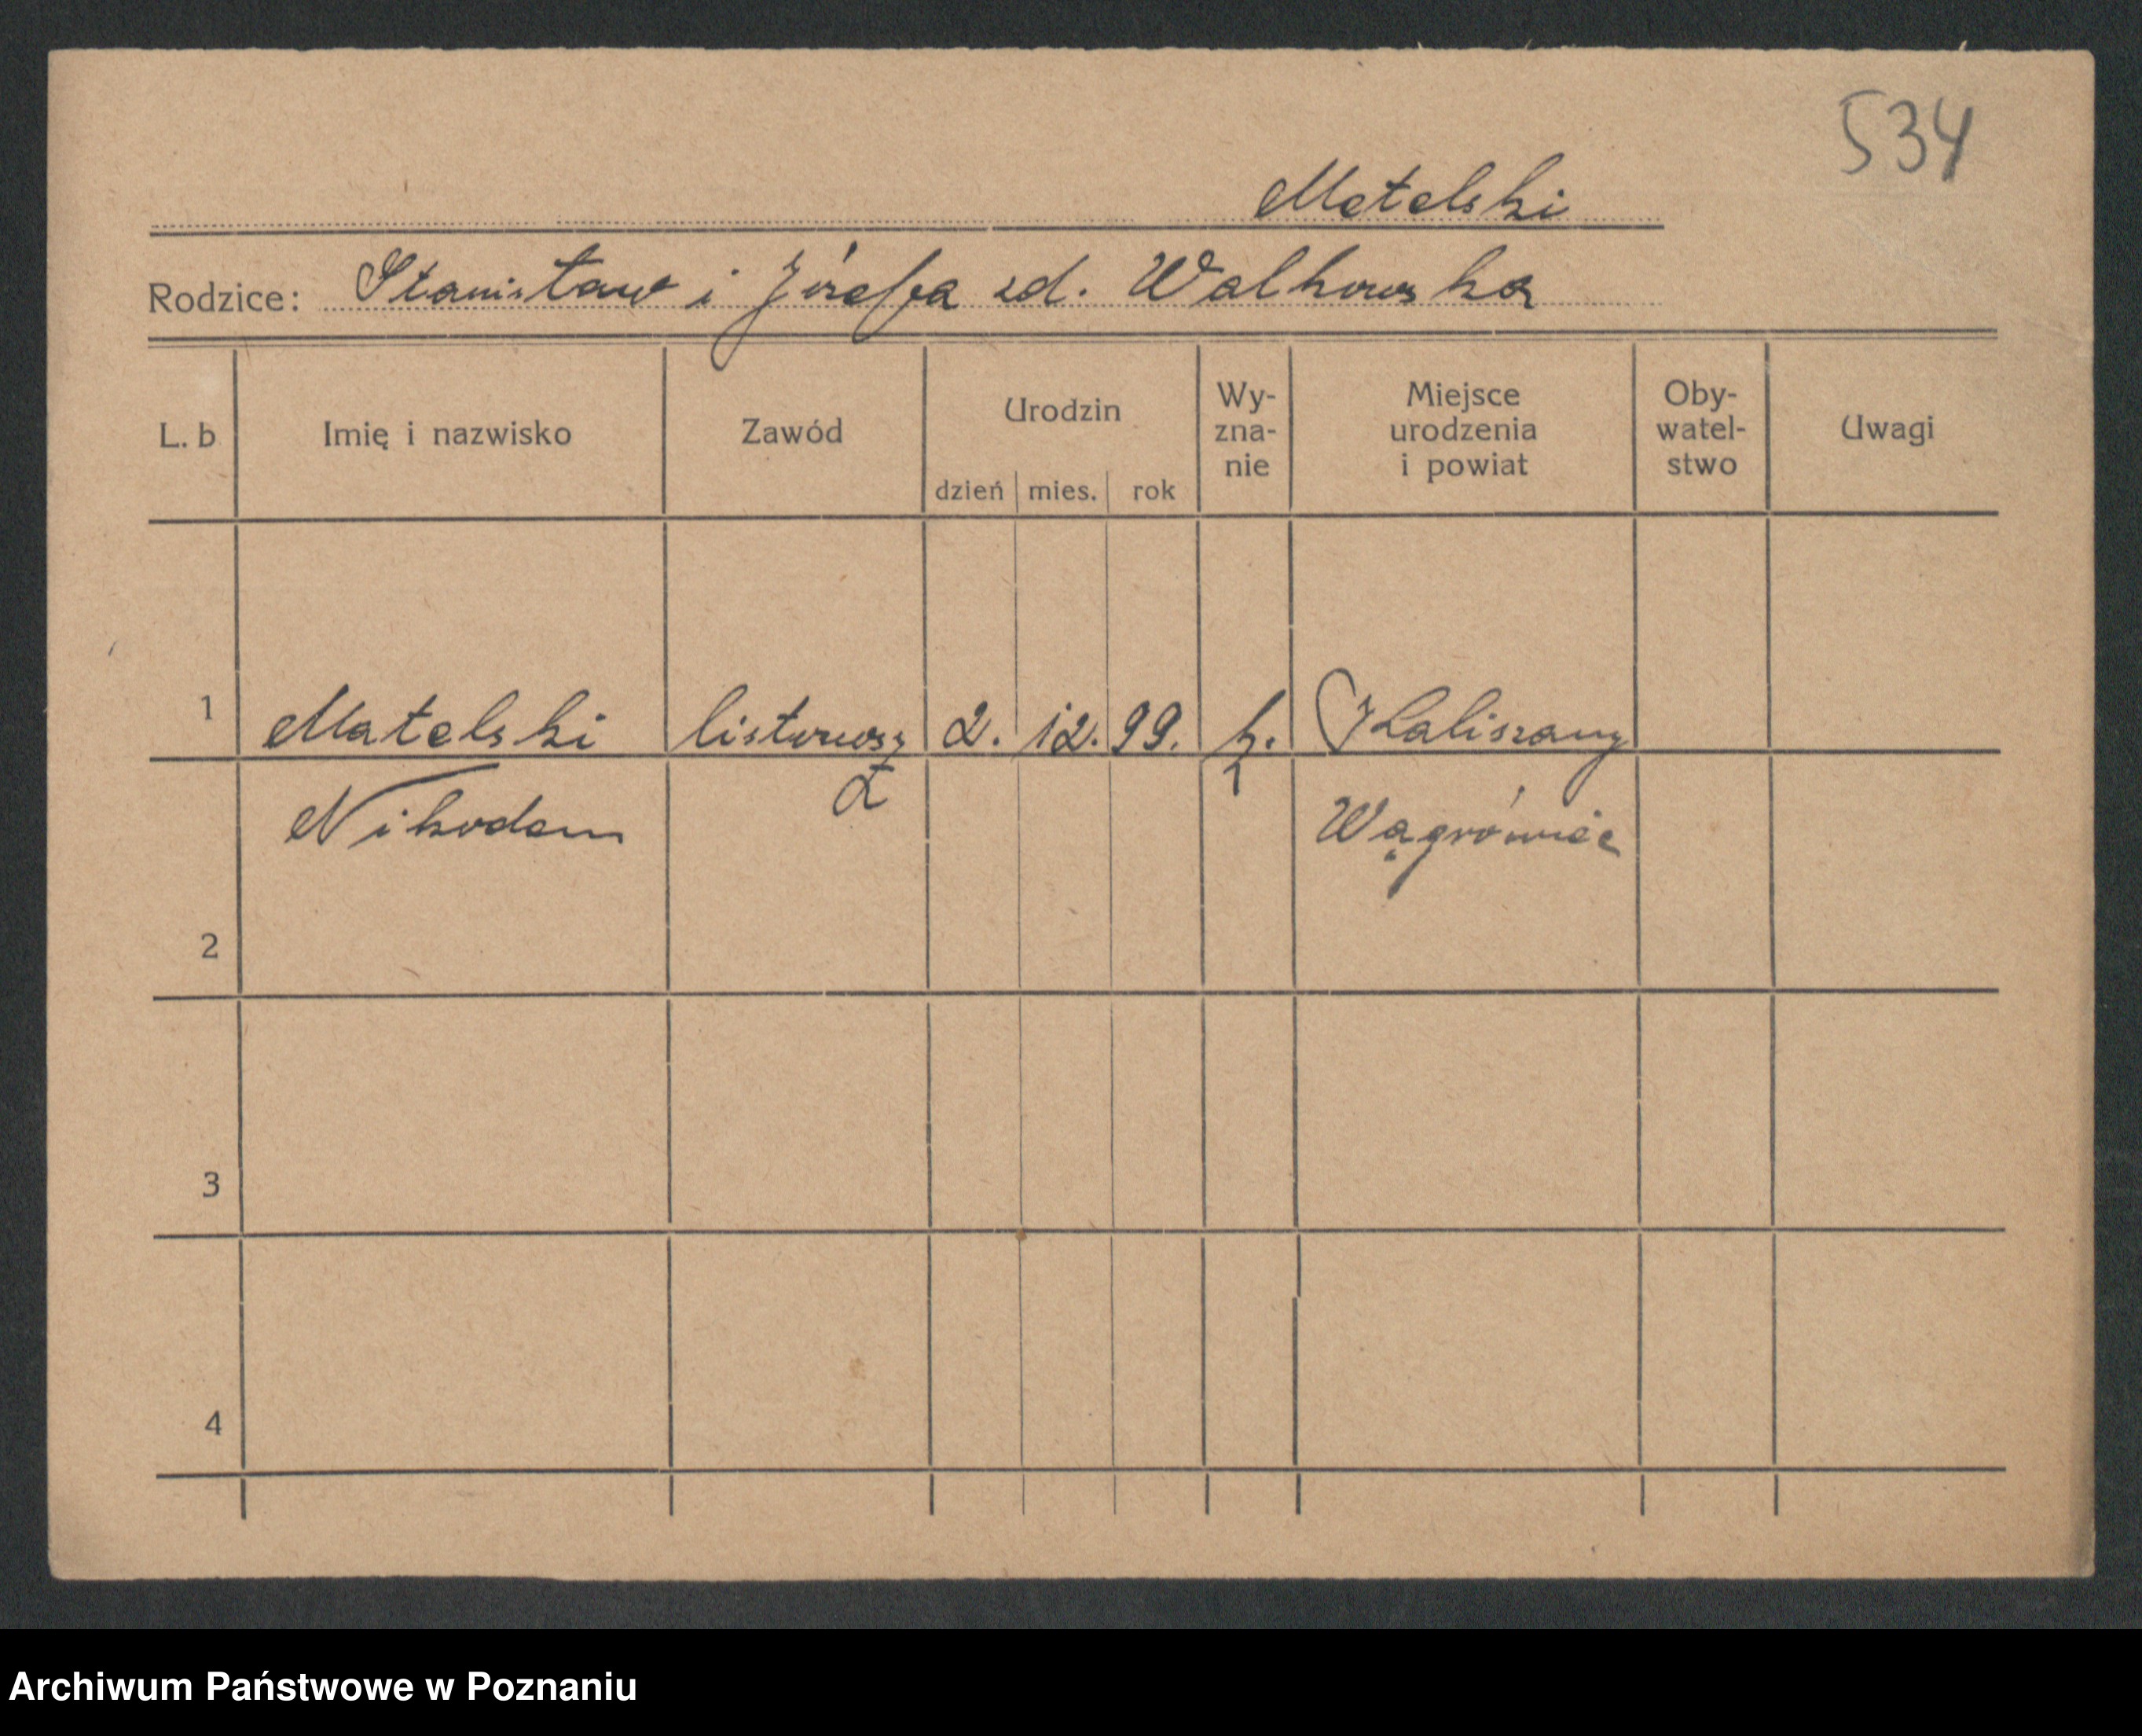 534
Metelski
Rodzice: Stanisław i Józefa zd. Walkowska
L. b
Imię i nazwisko
Zawód
Urodzin
dzień mies. rok
Wy-
zna-
nie
Miejsce
urodzenia
i powiat
Oby-
watel-
stwo
Uwagi
1 Matelski listowosz 2. 12. 99. k. Kaliszany
Nikodem Wągrówiec
2
3
4
Archiwum Państwowe w Poznaniu